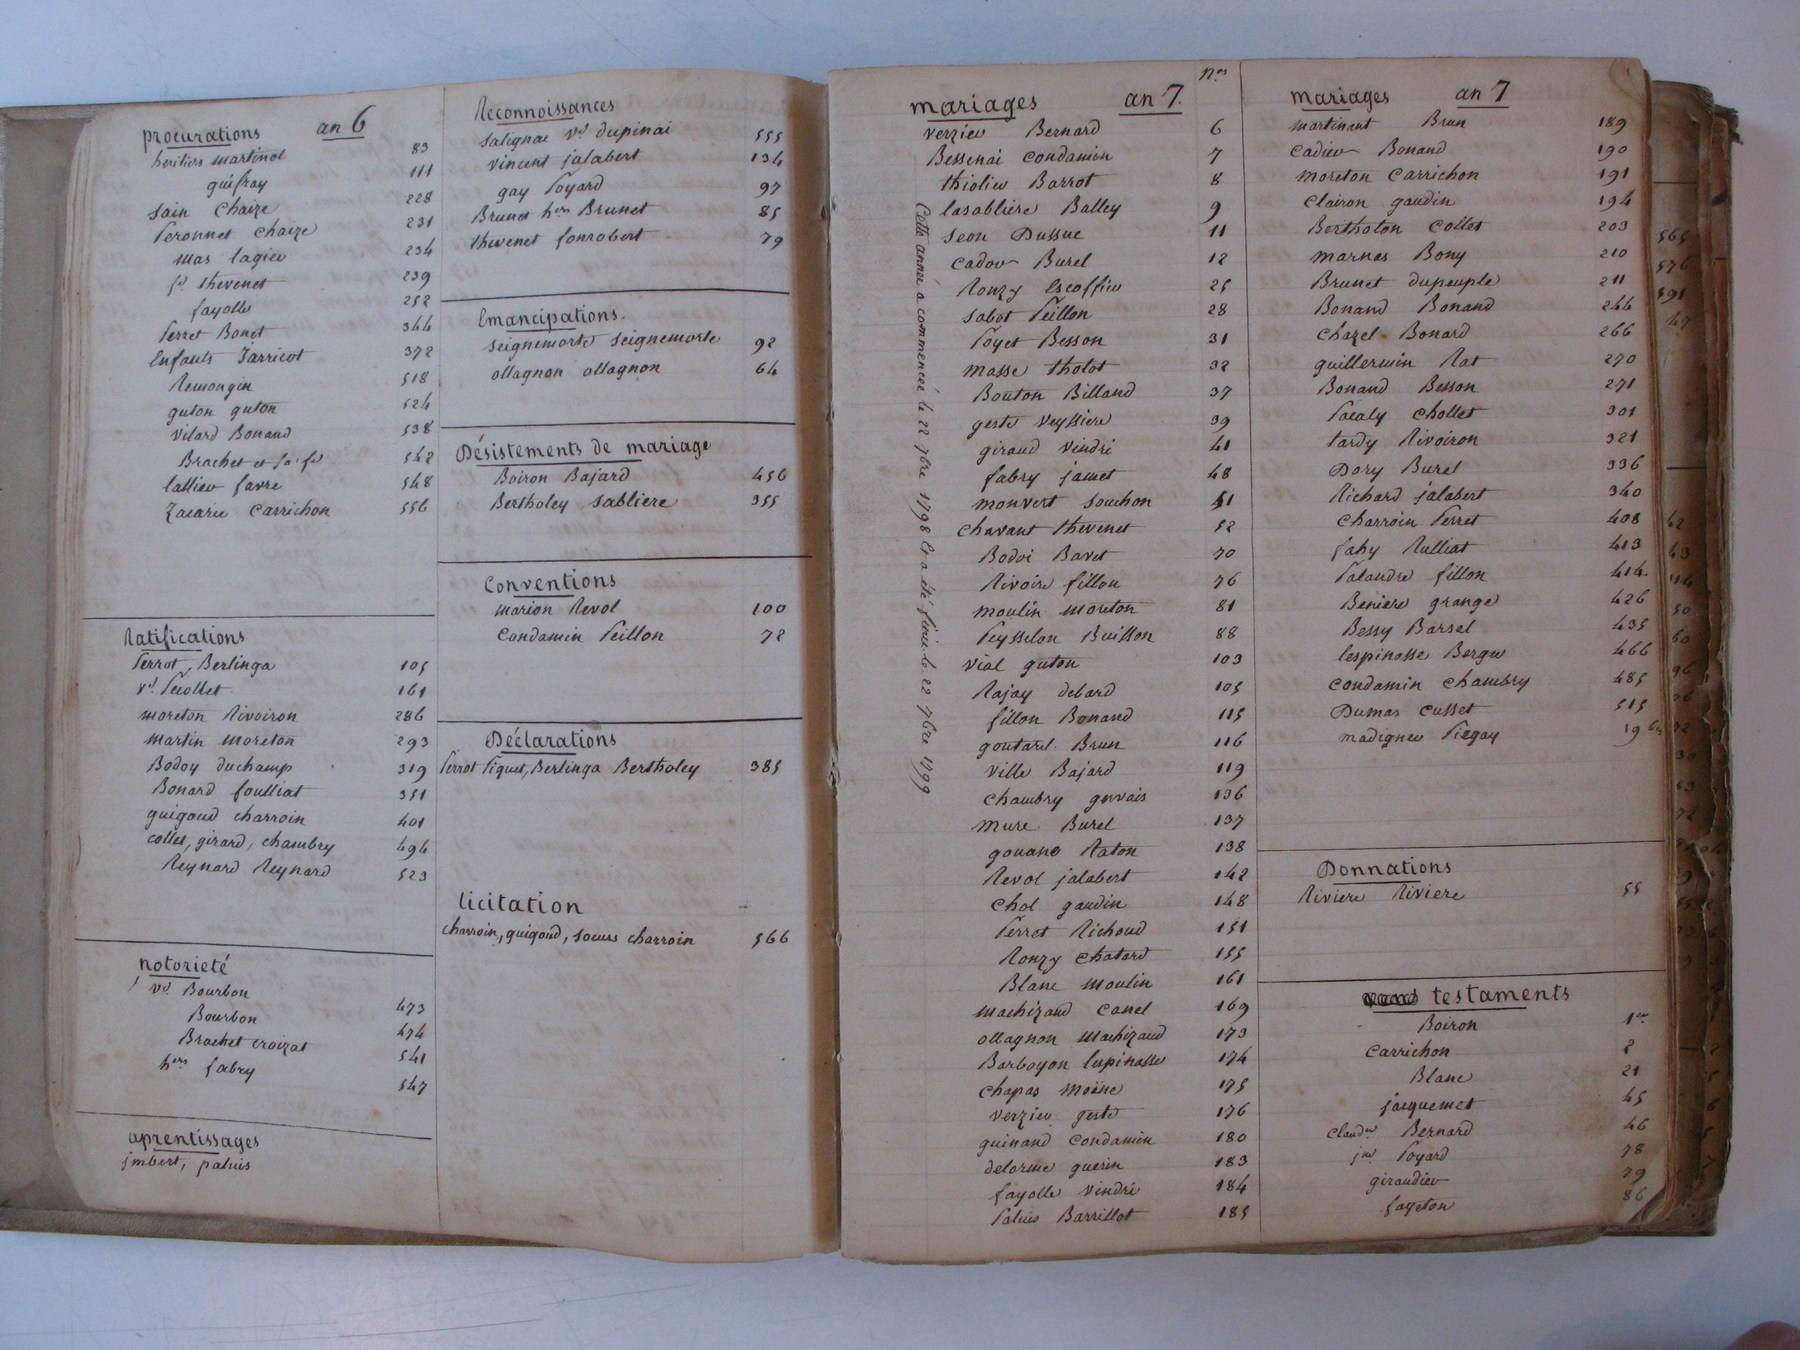 procurations an 6
heritiers martinol 83
guéfray 111
Sain Chaize 228
Peronnet Chaize 231
mas lagier 234
fs thevenet 239
fayolle 252
Perret Bonet 344
Enfants Jarricot 372
Remongin 518
guton guton 524
vilard Bonand 538
Brachet et sa fe 542
lallier favre 548
Zacarie Carrichon 556
Ratifications
Perrot, Berlinga 105
ve Pecollet 161
moreton Rivoiron 286
martin moreton 293
Bodoy duchamp 319
Bonard foulliat 351
guigoud charroin 401
collet, girard, chambry 494
Reynard Reynard 523
notorieté
ve Bourbon 473
Bourbon 474
Brachet croizat 541
hers fabry 547
aprentissages
jmbert, paluis
Reconnoissances
Salignac ve dupinai 555
vincent jalabert 134
gay Poyard 97
Brunet hers Brunet 85
thevenet fonrobert 79
Emancipations.
Seignemorte Seignemorte 92
ollagnon ollagnon 64
Désistements de mariage
Boiron Bajard 456
Bertholey Sabliere 355
Conventions
marion Revol 100
Condamin Peillon 72
Déclarations
Perrot Piquet, Berlinga Bertholey 385
licitation
charroin, guigoud, Soeurs charroin 566
nos
mariages an 7.
verzieu Bernard 6
Bessenai condamin 7
thiolieu Barrot 8
lasabliere Balley 9
Seon Dussuc 11
Cadou Burel 12
Ronzy Escoffieu 25
Sabot Peillon 28
Poyet Besson 31
masse tholot 32
Bouton Billand 37
geste veyssiere 39
giraud vindri 41
fabry jamet 48
monvert Souchon 51
chavant thevenet 52
Bodoi Bavet 70
Rivoire fillon 76
moulin moreton 81
Peysselon Buisson 88
vial guton 103
Rajay debard 105
fillon Bonand 115
goutarel Brun 116
ville Bajard 119
chambry gervais 136
mure Burel 137
gouano Raton 138
Revol jalabert 142
chol gaudin 148
Perret Richoud 151
Ronzy chatard 155
Blanc moulin 161
machizaud canel 169
ollagnon machizaud 173
Barboyon lupinasse 174
chapas moëne 175
verzieu geste 176
guinand condamin 180
delorme guerin 183
fayolle vindri 184
Paluis Barrillot 185
Cette année a commencé le 22 7bre 1798 Et a été finie le 22 7bre 1799
mariages an 7
martinant Brun 189
Cadieu Bonand 190
moreton Carrichon 191
Clairon gaudin 194
Bertholon Collet 203
marnas Bony 210
Brunet dupeuple 211
Bonand Bonand 244
chazel Bonard 266
guillermin Rat 270
Bonand Besson 271
Pacaly chollet 301
tardy Rivoiron 321
Dory Burel 336
Richard jalabert 340
charroin Perret 408
fahy Rulliat 413
Palandre fillon 414
Beniere grange 426
Bessy Barsel 435
lespinasse Berger 466
condamin chambry 485
Dumas cusset 515
madigneu Piégay 19
Donnations
Riviere Riviere 55
testaments
Boiron 1er
Carrichon 2
Blanc 21
jacquemet 45
claudne Bernard 46
jne Poyard 78
giraudieu 79
fayeton 86
565
576
591